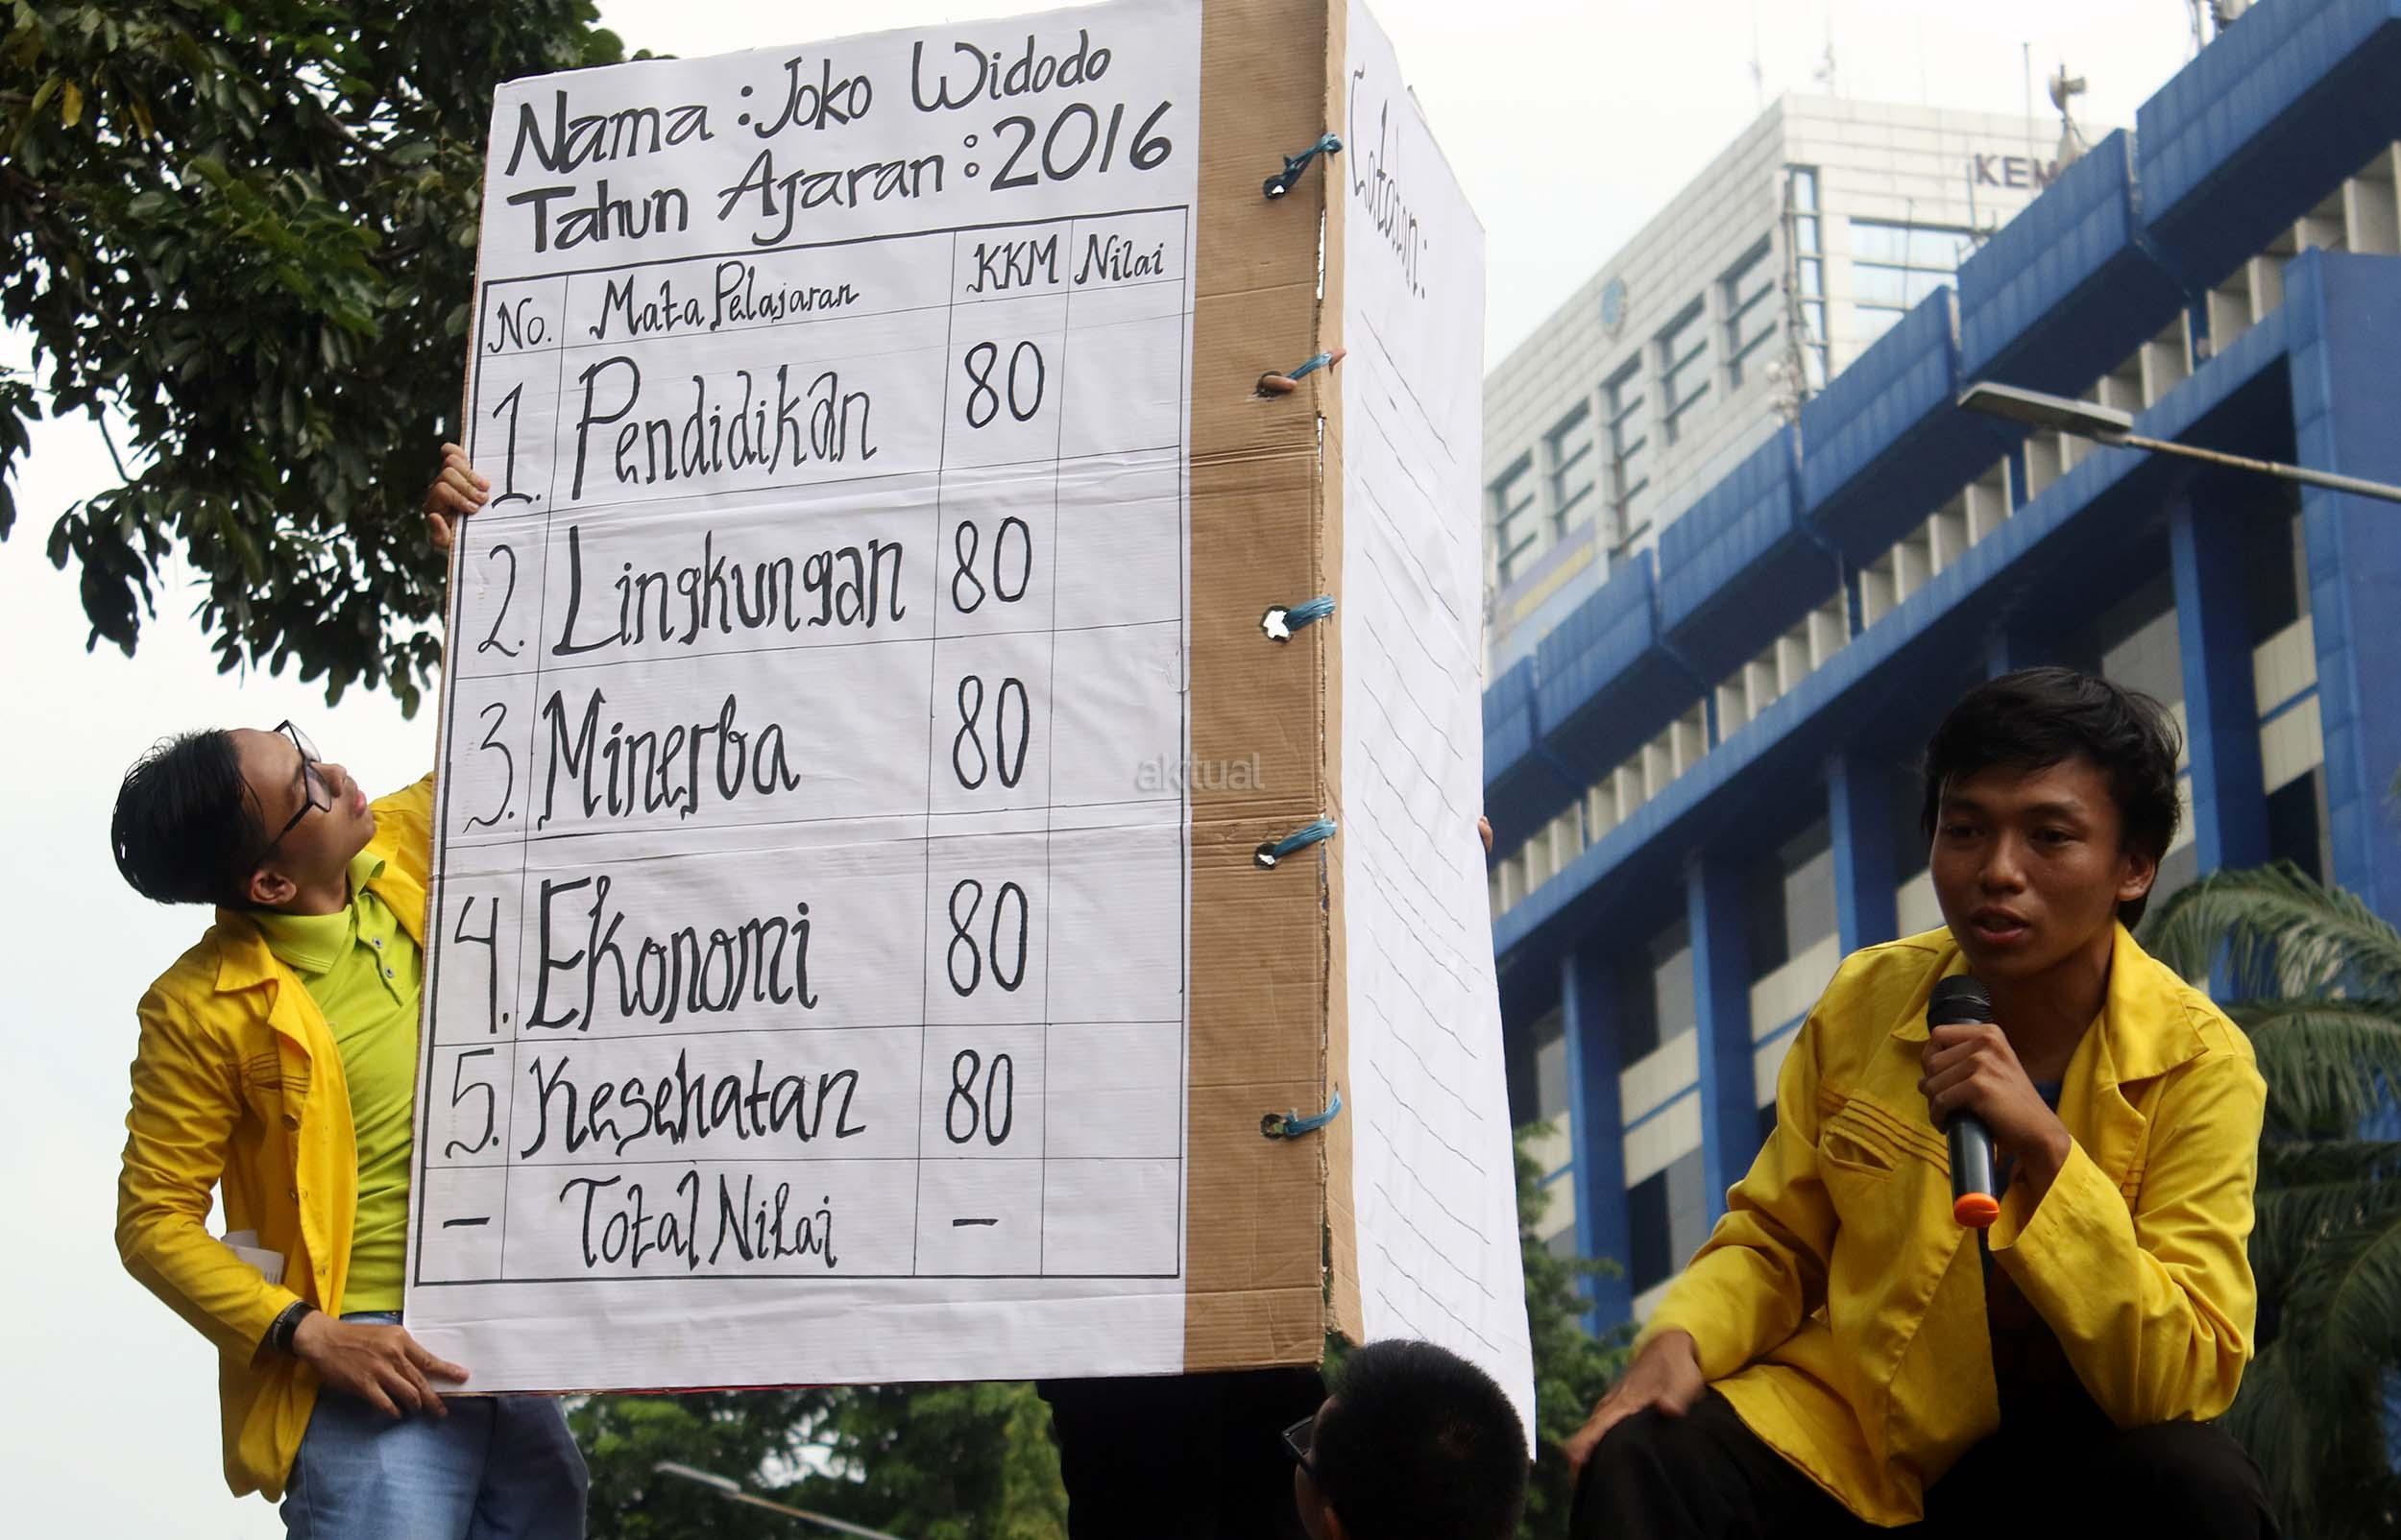 Nama : Joko Widodo
Tahun Ajaran : 2016
No. Mata Pelajaran KKM Nilai
1. Pendidikan 80
2. Lingkungan 80
3. Minerba 80
4. Ekonomi 80
5. Kesehatan 80
- Total Nilai -
Catatan:
KEM
aktual